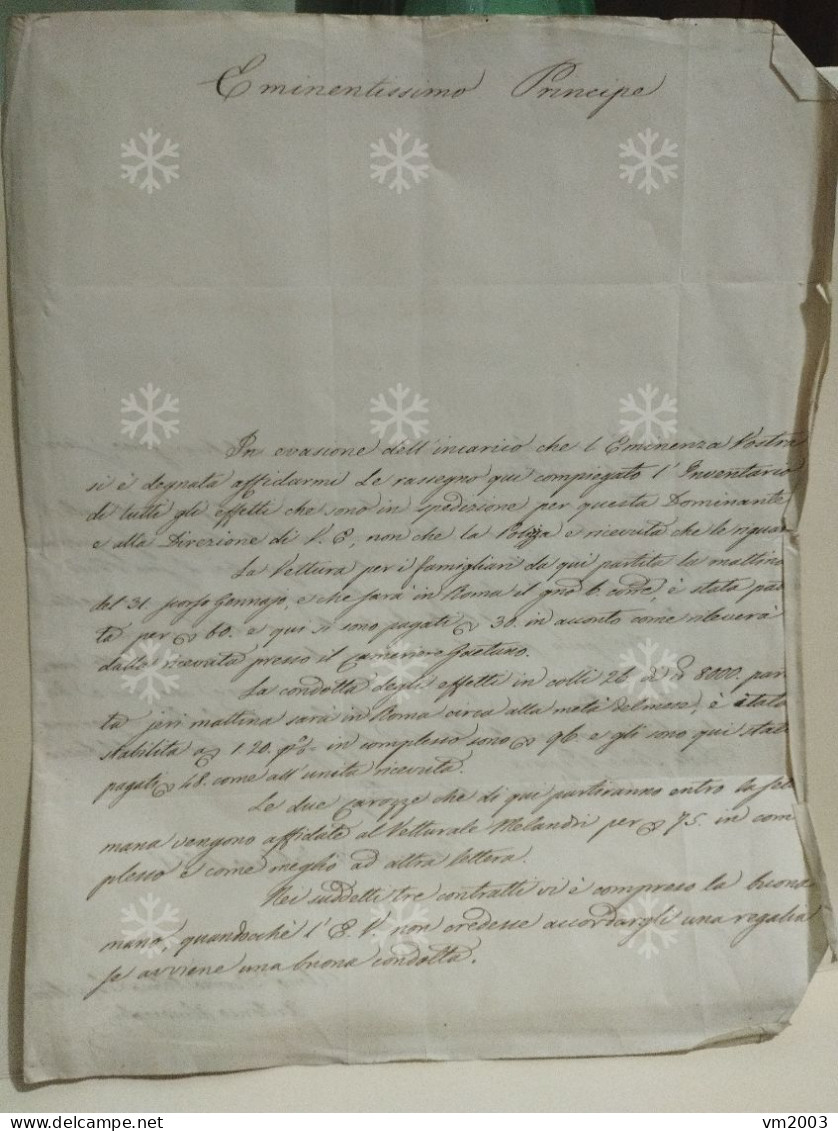 Eminentissimo Principe
In evasione dell'incarico che l'Eminenza Vostra
si è degnata affidarmi Le rassegno qui compiegato l'Inventario
di tutti gli effetti che sono in spedizione per questa Dominante
e alla Direzione di V. E., non che la Polizza e ricevuta che le riguar
La Vettura per i famigliari da qui partita la mattina
del 31. scorso Gennajo, e che sarà in Roma il gno 6. corre, è stata pat
ta per 60. e qui si sono pagati 30. in acconto come rileverà
dalla ricevuta presso il Cameriere Gaetano.
La condotta degli effetti in colli 26 di 8000. par
ta jeri mattina sarà in Roma circa alla metà del mese, è stata
stabilita a 1.20. in complesso sono 96. e gli sono qui stati
pagati 48. come all'unita ricevuta.
Le due Carozze che di qui partiranno entro la set
mana vengono affidate al Vetturale Melandri per 75. in com
plesso e come meglio ad altra lettera.
Nei suddetti tre contratti vi è compreso la buona
mano, quandochè l'E. V. non credesse accordargli una regalia
se avviene una buona condotta.
vm2003